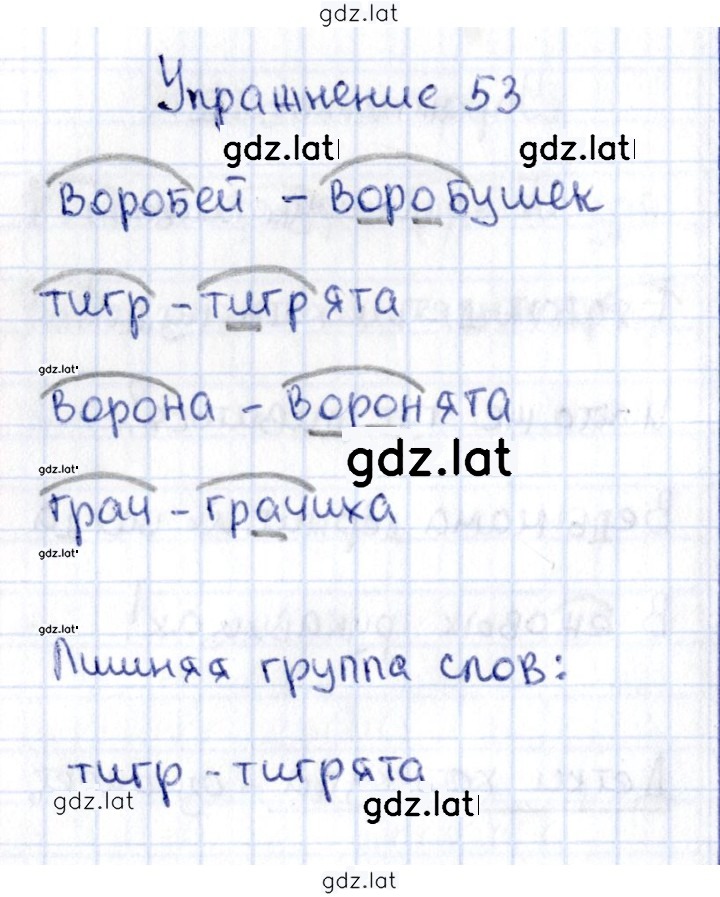 gdz.lat
Упражнение 53
gdz.lat gdz.lat
воробей - воробушек
тигр - тигрята
gdz.lat
ворона - воронята
gdz.lat
gdz.lat
грач - грачиха
gdz.lat
gdz.lat
Лишняя группа слов:
тигр - тигрята
gdz.lat gdz.lat
gdz.lat